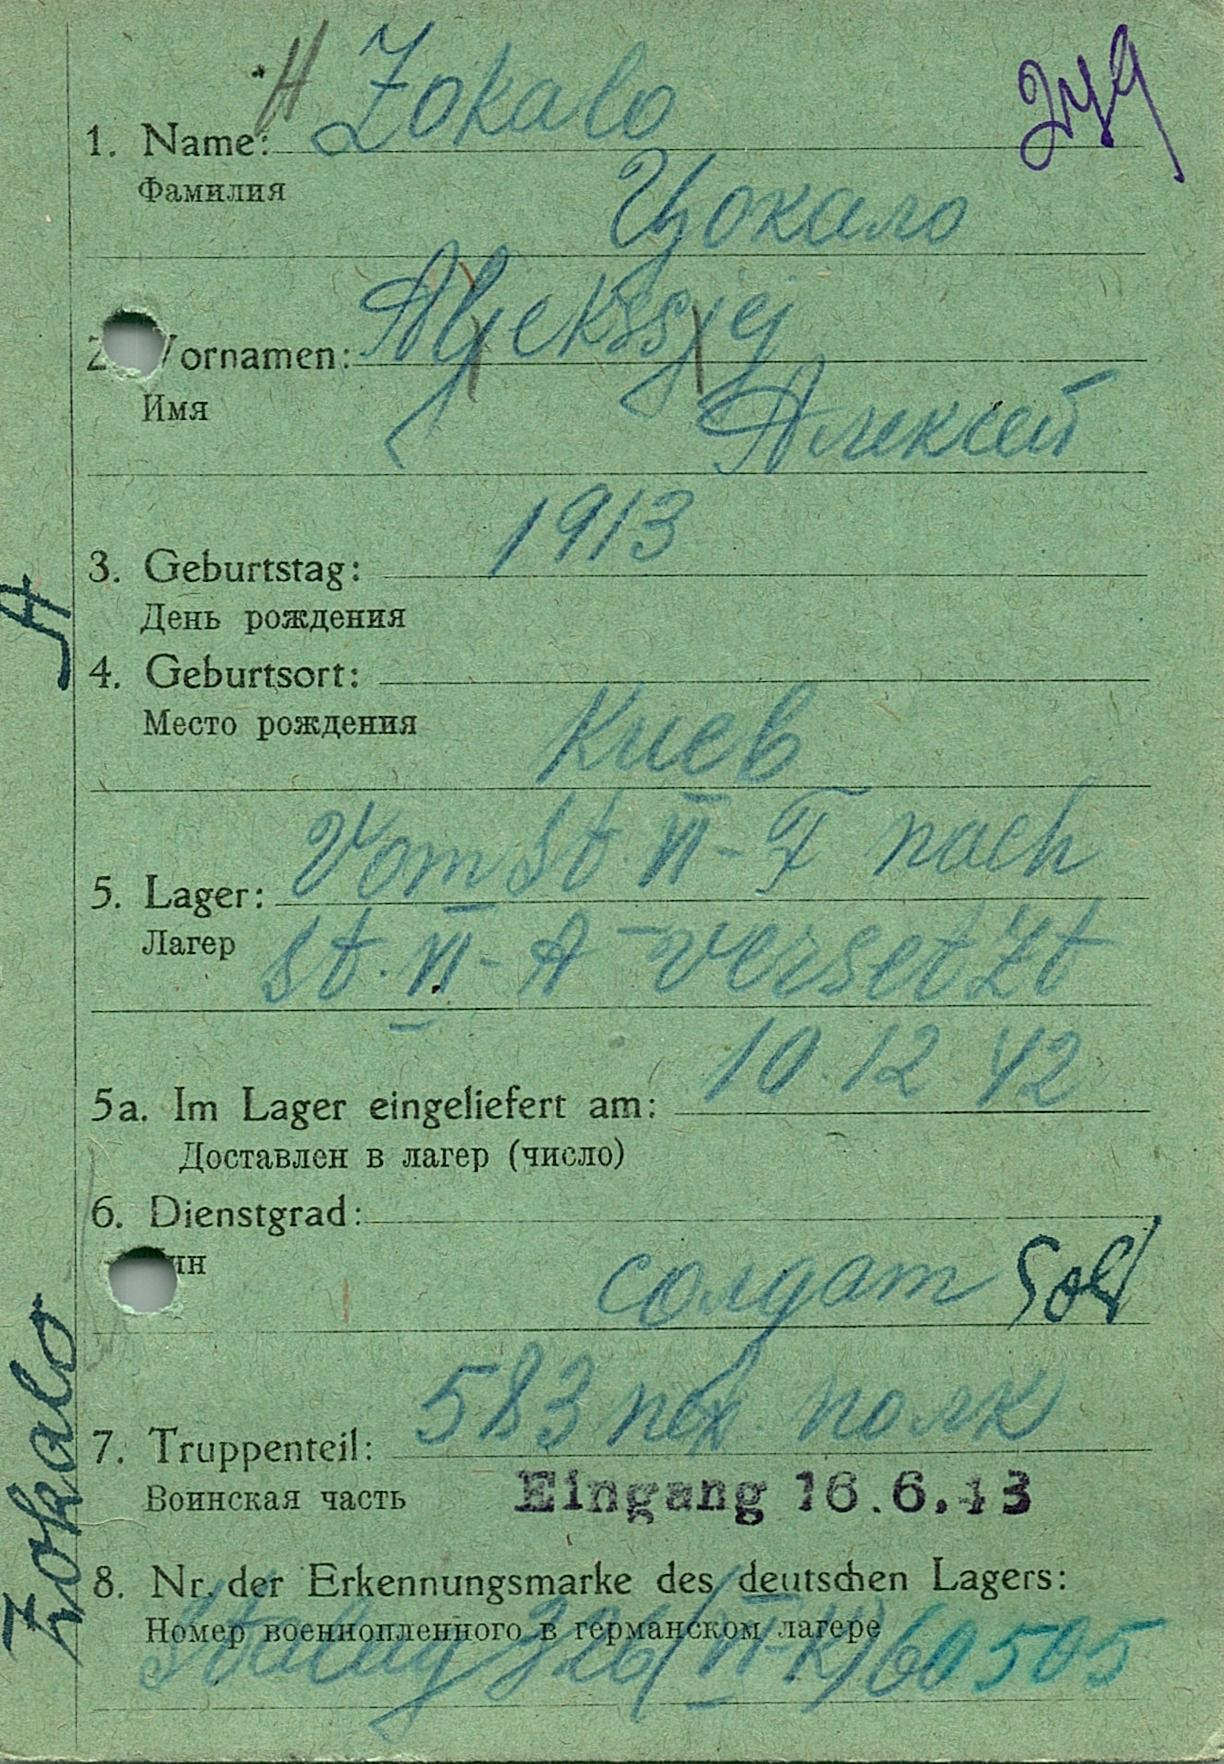 H Zokalo
249
1. Name:
Фамилия
Цокало
Aljekssjej
2. Vornamen:
Имя
Алексей
1913
3. Geburtstag:
День рождения
A
4. Geburtsort:
Место рождения
Киев
Vom St. VI-F nach
5. Lager:
Лагер
St. VI-A versetzt
10.12 42
5a. Im Lager eingeliefert am:
Доставлен в лагер (число)
6. Dienstgrad:
ин
солдат Sold
583 пех полк
7. Truppenteil:
Воинская часть
Eingang 16.6.43
Zokalo
8. Nr. der Erkennungsmarke des deutschen Lagers:
Номер военнопленного в германском лагере
Stalag 326(VI-K) 60505